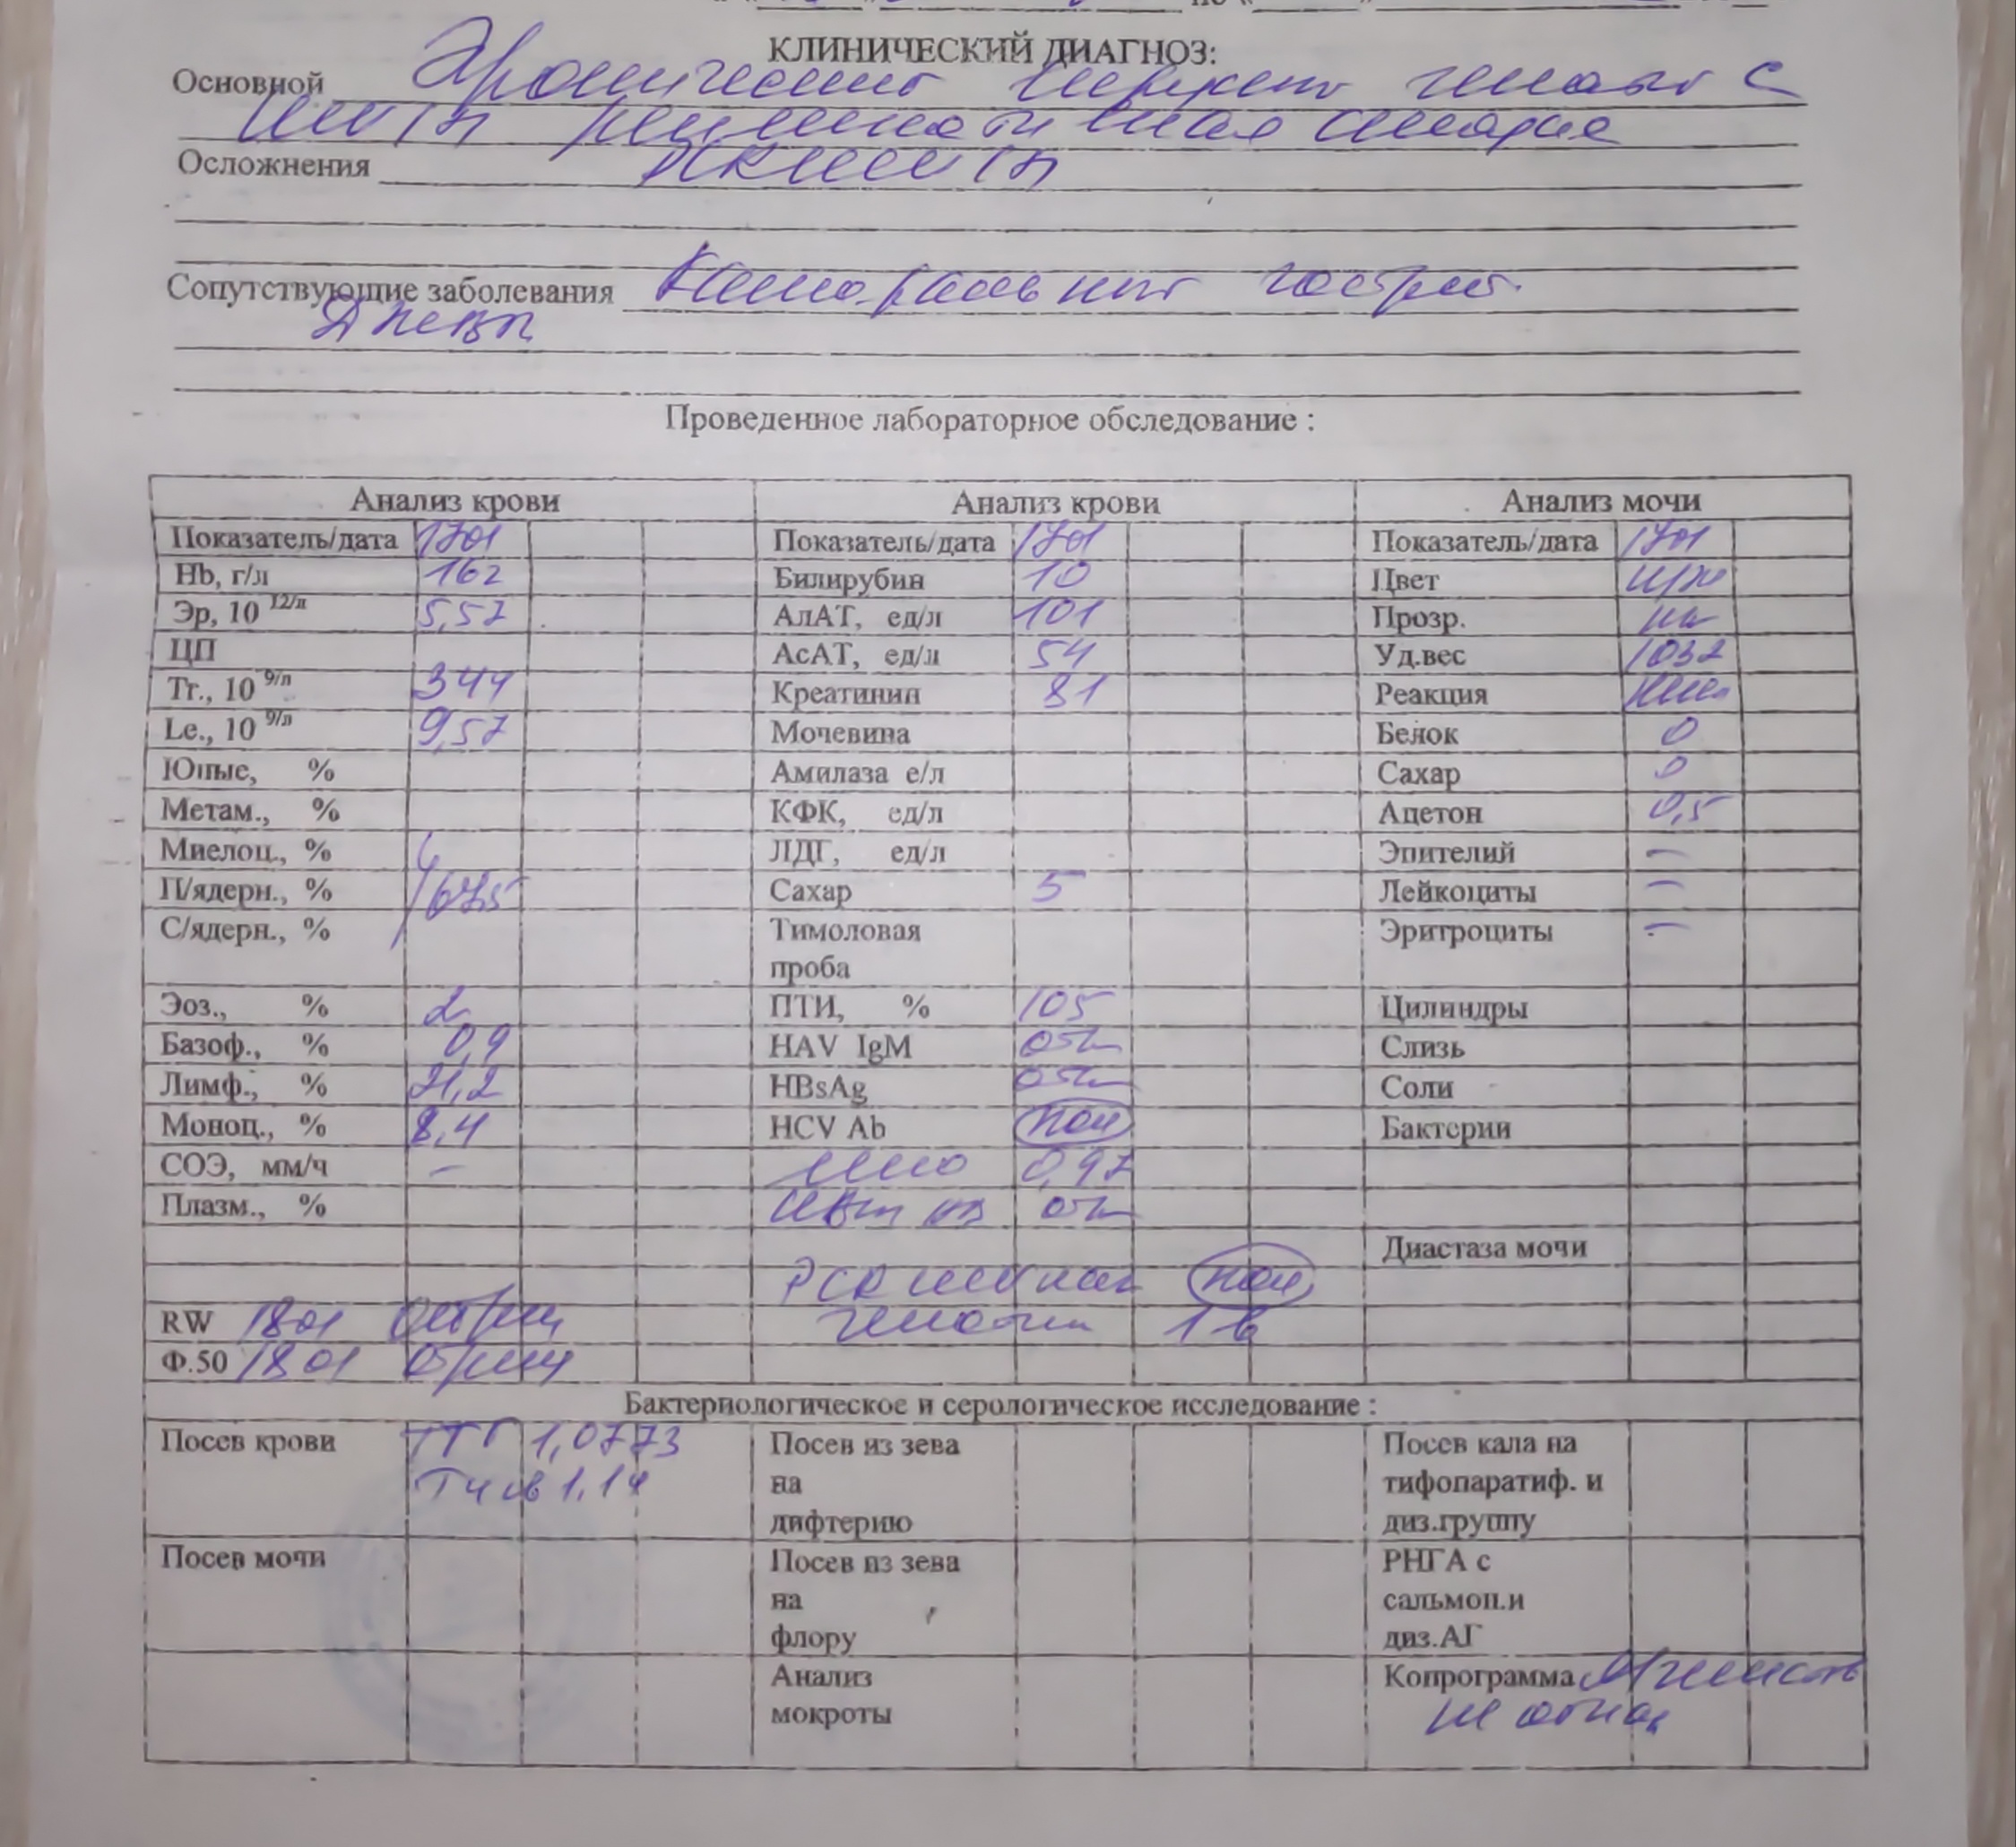 КЛИНИЧЕСКИЙ ДИАГНОЗ:
Основной Хронический гепатит с
репликативная стадия
Осложнения
Сопутствующие заболевания Катаральный гастрит.
Проведенное лабораторное обследование :
Анализ крови Анализ крови Анализ мочи
Показатель/дата 1701 Показатель/дата 1701 Показатель/дата 1701
Hb, г/л 162 Билирубин 10 Цвет
Эр, 10 12/л 5,57 АлАТ, ед/л 101 Прозр.
ЦП АсАТ, ед/л 54 Уд.вес 1032
Тг., 10 9/л 344 Креатинин 81 Реакция
Le., 10 9/л 9,57 Мочевина Белок 0
Юные, % Амилаза е/л Сахар 0
Метам., % КФК, ед/л Ацетон 0,5
Миелоц., % ЛДГ, ед/л Эпителий –
П/ядерн., % 67,5 Сахар 5 Лейкоциты –
С/ядерн., % Тимоловая проба Эритроциты –
Эоз., % 2 ПТИ, % 105 Цилиндры
Базоф., % 0,9 HAV IgM Слизь
Лимф., % 21,2 HBsAg Соли
Моноц., % 8,4 HCV Ab пол Бактерии
СОЭ, мм/ч – МНО 0,97
Плазм., %
Диастаза мочи
пол
RW 1801 генотип 1в
Ф.50 1801
Бактериологическое и серологическое исследование :
Посев крови ТТГ 1,0773 Посев из зева на дифтерию Посев кала на тифопаратиф. и диз.группу
Т4 св 1,14
Посев мочи Посев из зева на флору РНГА с сальмон.и диз.АГ
Анализ мокроты Копрограмма